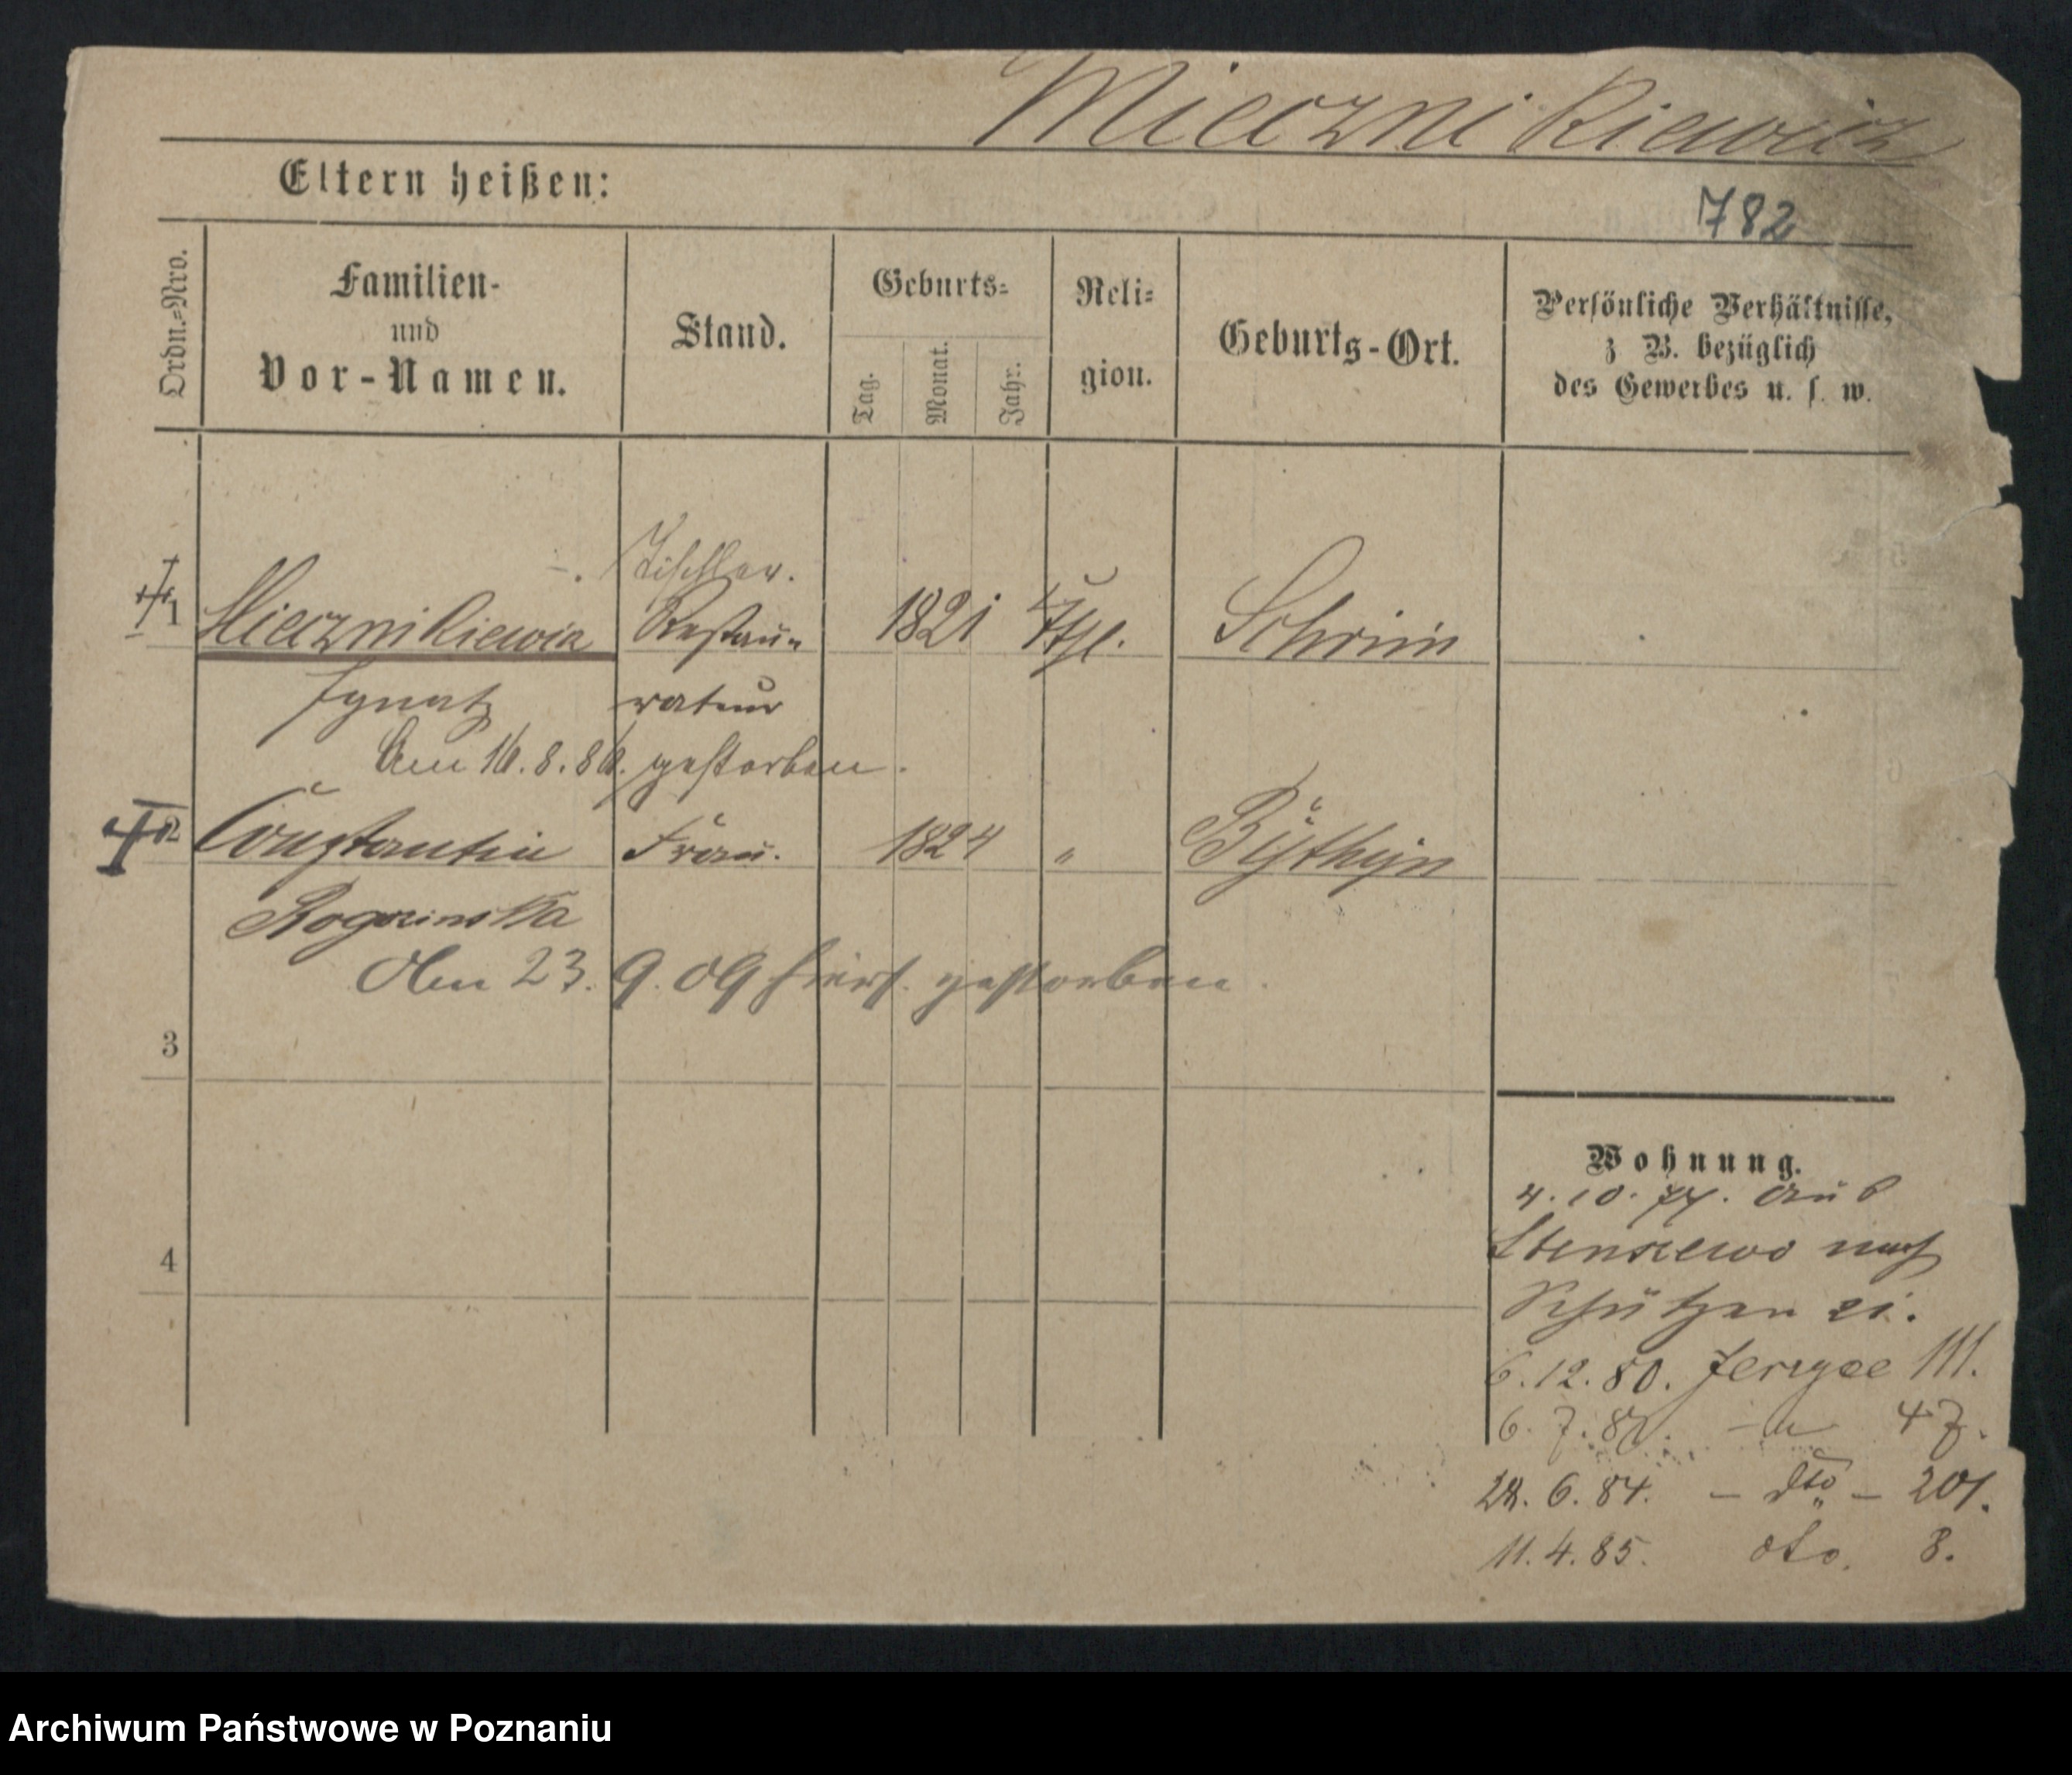 Miecznikiewicz
Eltern heißen:
782
Ordn.=Nro.
Familien-
und
Vor-Namen.
Stand.
Geburts=
Tag.
Monat.
Jahr.
Reli=
gion.
Geburts-Ort.
Persönliche Verhältnisse,
z B. bezüglich
des Gewerbes u. s. w.
Tischler.
1 Miecznikiewicz Restau= 1821 Kthl. Schrim
Ignatz rateur
Am 16.8.86. gestorben.
2 Constantia Frau. 1824 " Bythyn
Rogozinska
Am 23. 9. 09 hiers. gestorben.
3
4
Wohnung.
4. 10. 74. aus
Stenszewo nach
Schützen 21.
6.12.80. Jerzyce 111.
6. 7. 47.
28. 6. 84. - dto - 201.
11. 4. 85. dto. 8.
Archiwum Państwowe w Poznaniu